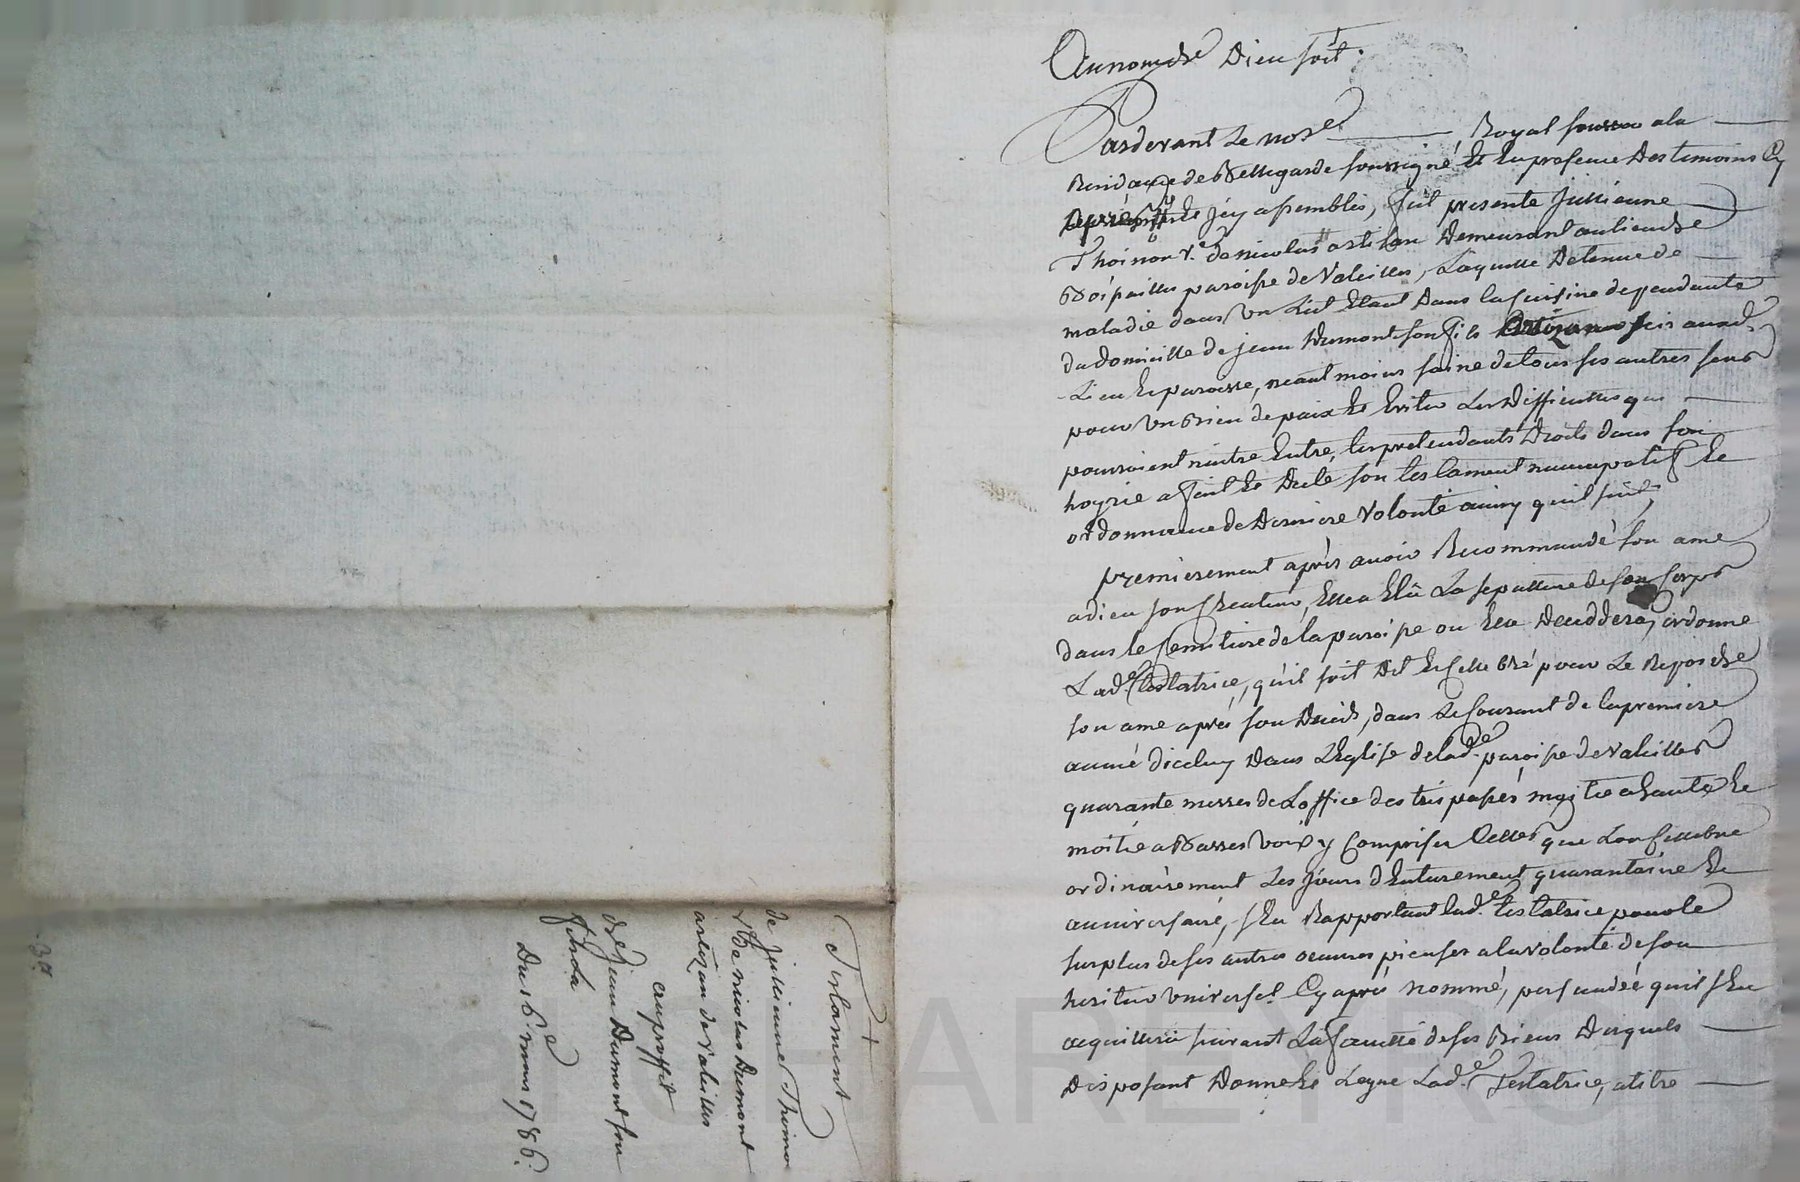 Au nom de Dieu soit
Pardevant Le no.re Royal soussa a la
Residance de Bellegarde soussigné Et En presence Des temoins Cy
apres Jcy assemblés, fut presente Jullienne
Thoinon v.e de nicolas artisan Demeurant au lieu de
Boipailles paroisse de Valeilles, Laquelle Detenue de
maladie dans un Lit Etant Dans la Cuisine dependante
du domicille de jean Dumont son fils aud.
Lieu Et paroisse, neant moins saine de tous ses autres sens
pour un Bien de paix Et Eviter Les Difficultés qui
pourroient naitre Entre, les pretendants Droits dans son
hoyrie a fait Et Dicté son testament nuncupatif Et
ordonnance de Derniere Volonté ainsy qu'il suit,
premierement après avoir Recommandé son ame
a dieu son Createur, Elle a Elû La sepulture de son Corps
dans le Cemitiere de la paroisse ou Elle Deceddera, ordonne
Lad.e testatrice, qu'il soit Dit Et Cellebré pour Le Repos de
son ame après son Decès, dans Le Courant de la premiere
année d'iceluy Dans L'Eglise de lad.e paroisse de Valeilles
quarante messes de L'office des trepassés moitié a haute Et
moitié a Basses voix y Comprises Celles que L'on Cellebre
ordinairement Les Jours d'Enterrement quarantaine Et
anniversaire, s'En Rapportant lad.e testatrice pour le
surplus de ses autres œuvres pieuses a la volonté de son
heritier universel Cy après nommé, persuadée qu'il s'En
acquittera suivant La faculté de ses Biens Desquels
Disposant Donne Et Legue Lad.e Testatrice, a titre
Testament
de Jullienne Thoino
v.e De nicolas Dumont
artizan de Valeilles
au proffit
de Jean Dumont son
fils
Du 16.e mars 1786.
CHAREYRON